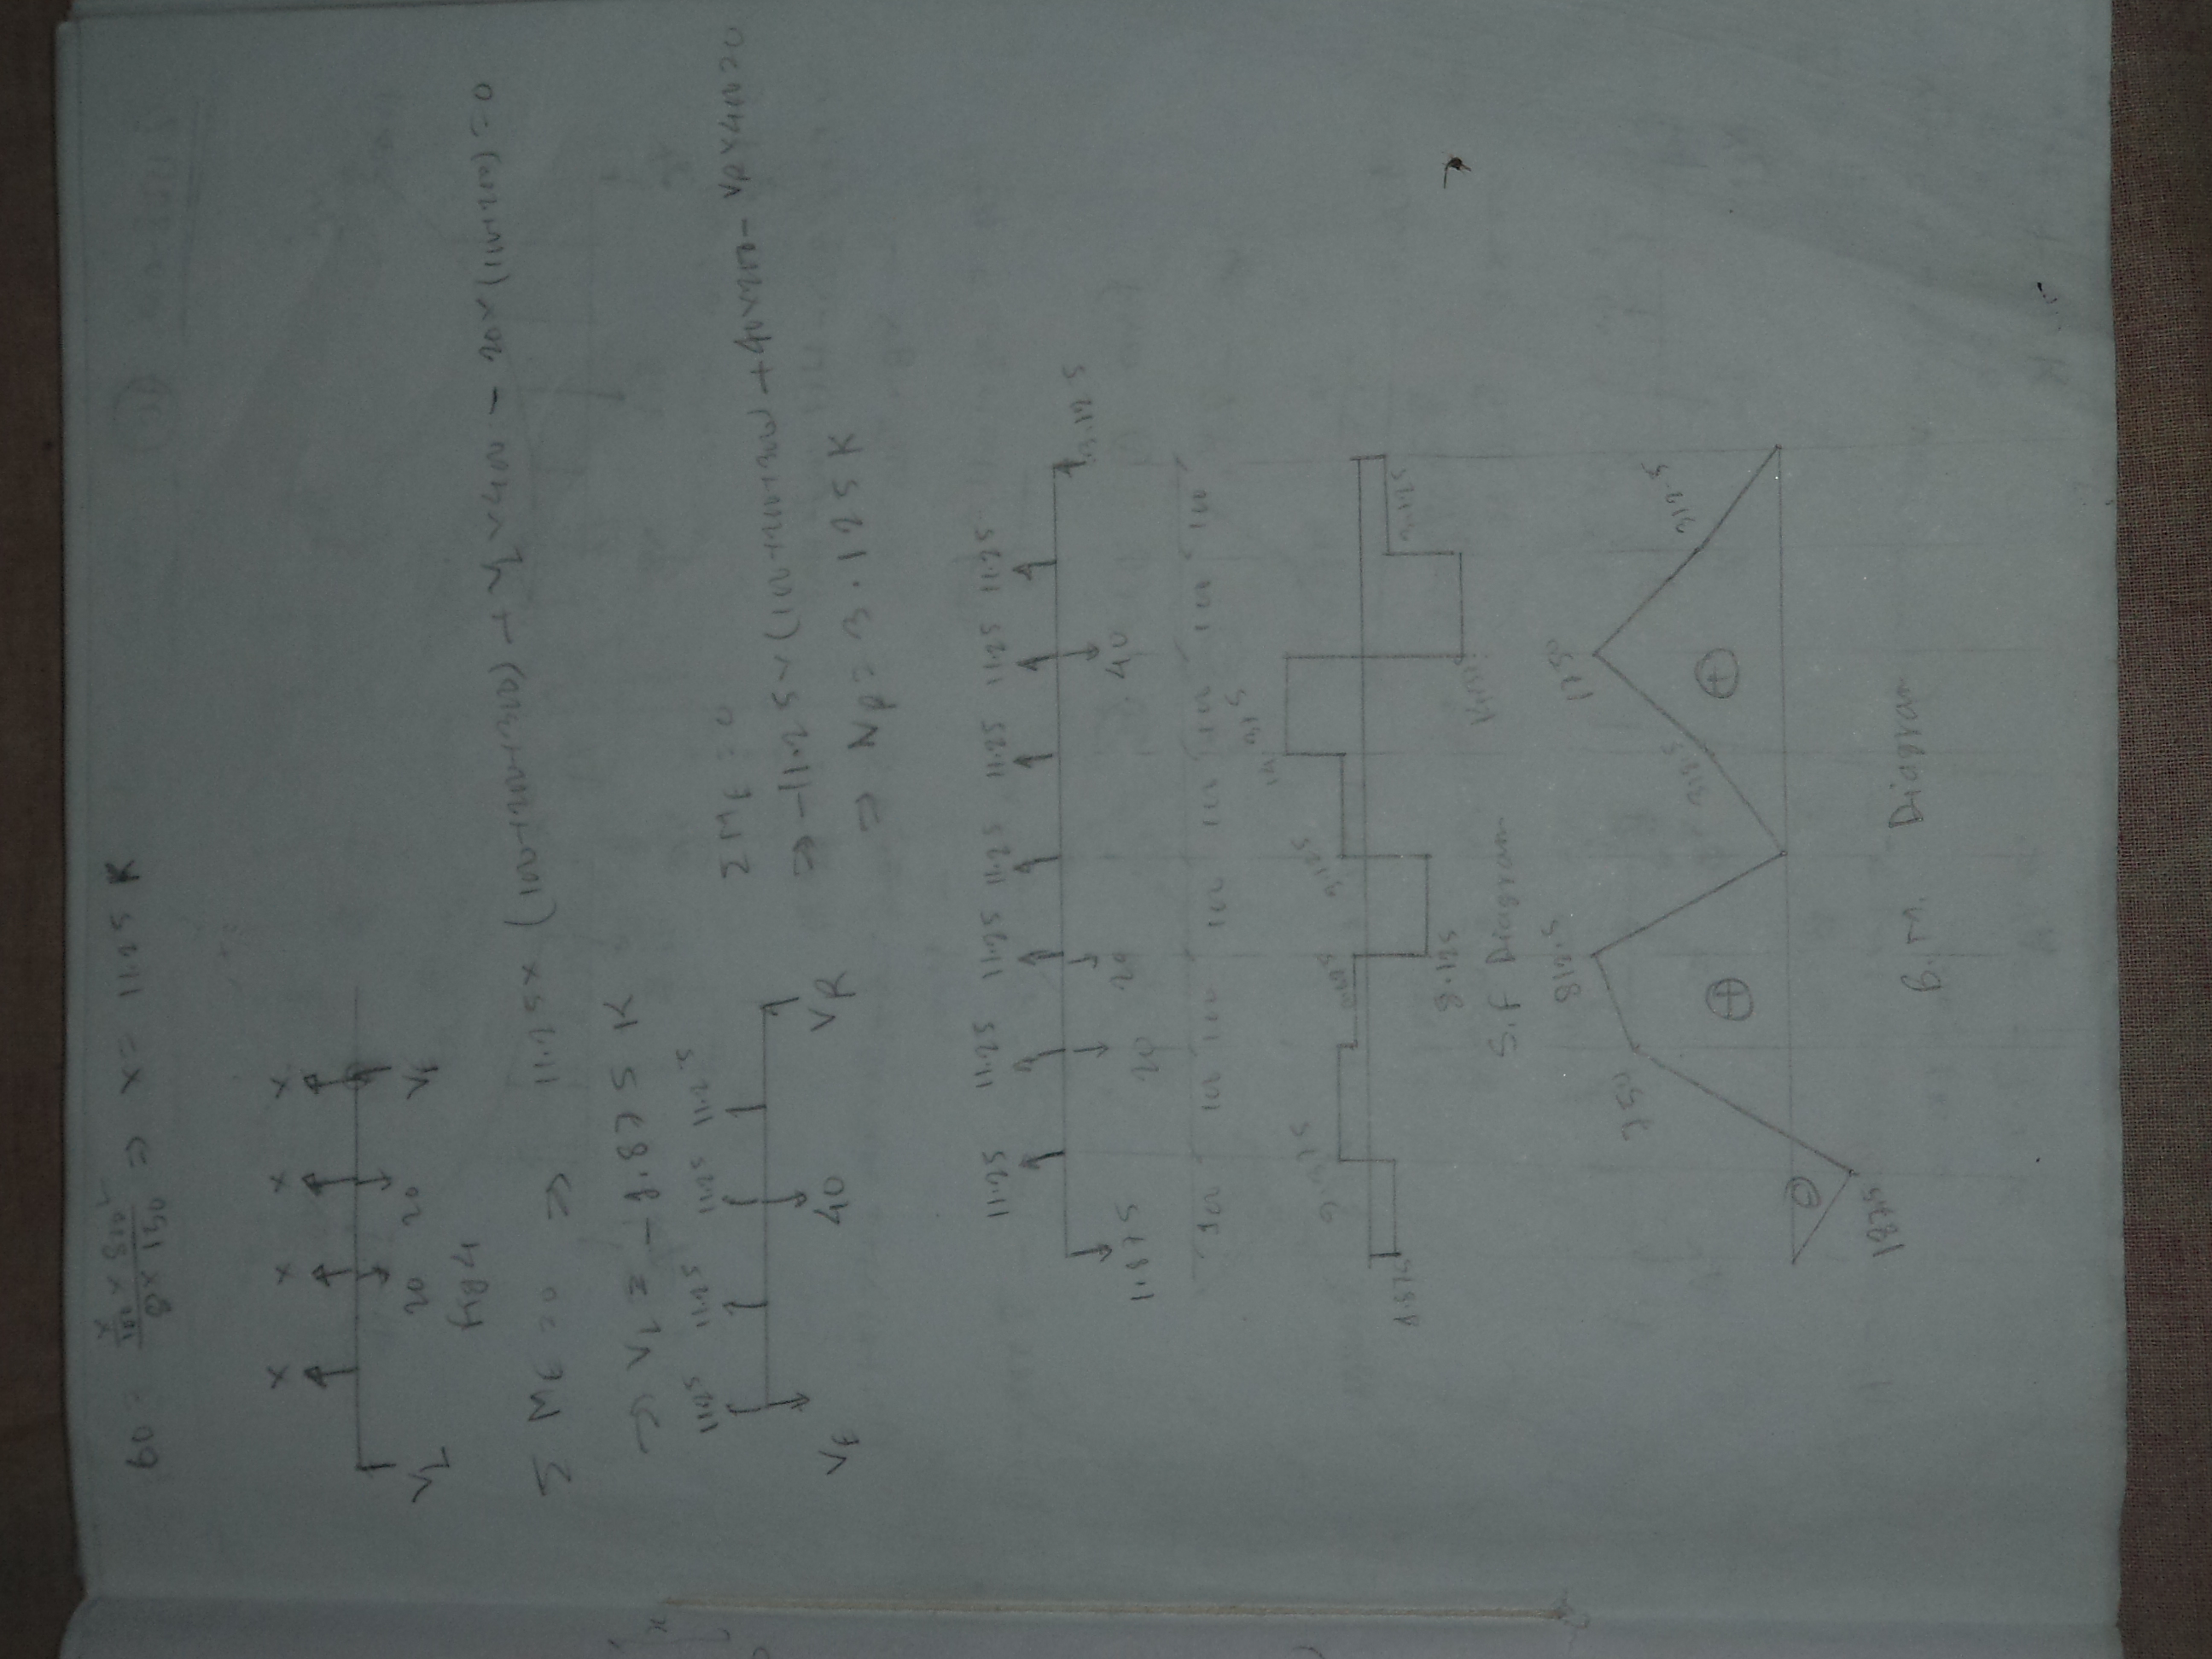 60 = 100/x × 800/8 × 150 ⇒ x = 11.25 K
x x x x
VL 20 20 VE
Fig 4
Σ ME = 0 ⇒ 11.25 × (100+200+300) + VL × 400 - 20 × (100+200) = 0
⇒ VL = -1.875 K
Σ ME = 0
11.25 11.25 11.25 11.25
⇒ -11.25 × (100+200+300) + 40×200 - VR×400 = 0
VE 40 VR
⇒ VR = 3.125 K
11.25 11.25 11.25 11.25 11.25 11.25 11.25
1.875 20 20 40 3.125
100 100 100 100 100 100 100 100
9.375
1.875
8.125
3.125
S.F Diagram
750 812.5 1150 312.5
187.5
B.M. Diagram